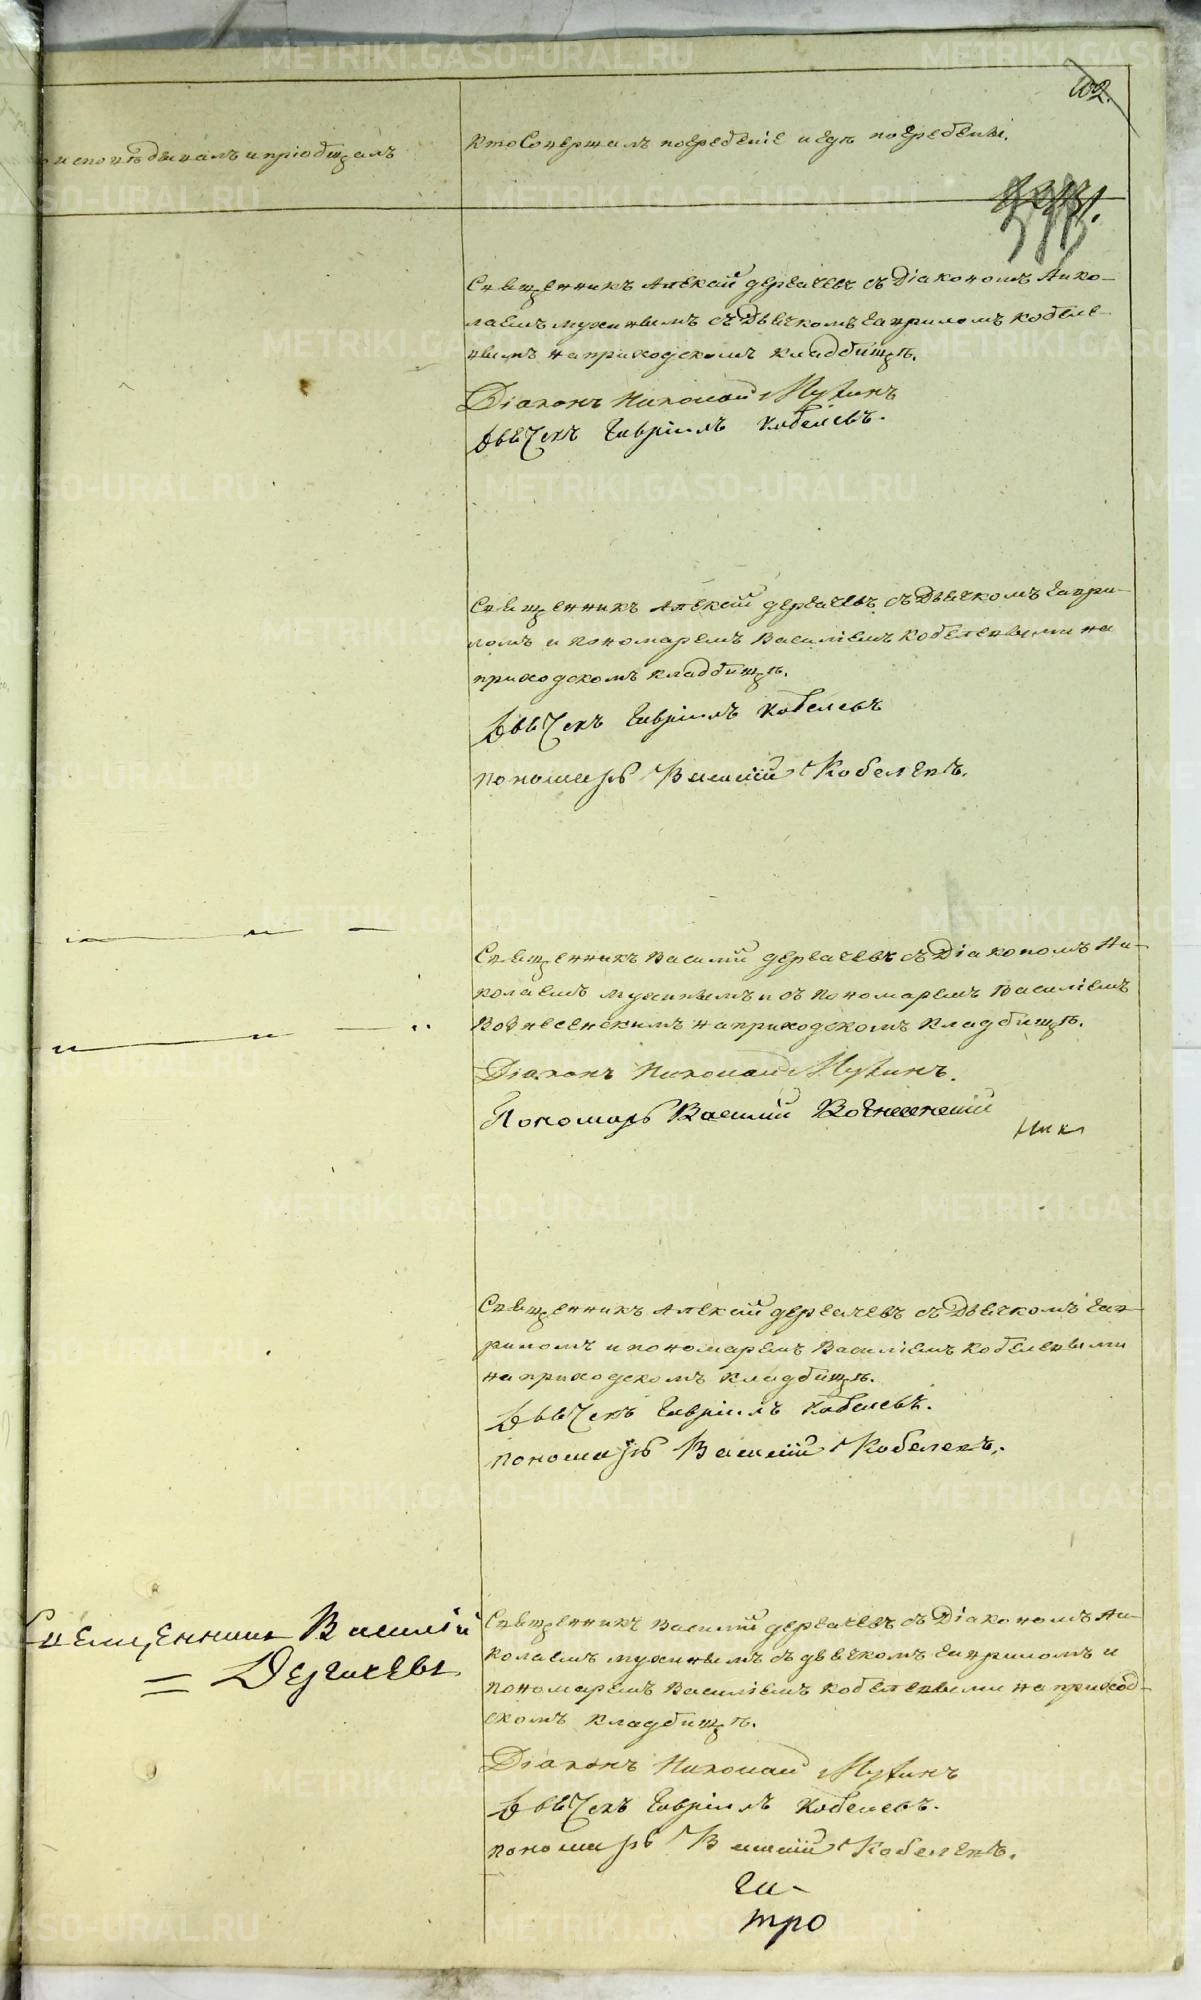 102.
исповѣдывалъ и пріобщалъ
Кто Совершалъ погребеніе и гдѣ погребены.
Священникъ Алексѣй дергачевъ съ Діакономъ Нико-
лаемъ мухинымъ съ Дьячкомъ Гавриломъ Кобеле-
вымъ на приходскомъ кладбищѣ.
Діаконъ Николай Мухинъ
Дьячекъ Гавріилъ Кобелевъ.
Священникъ Алексѣй дергачевъ съ Дьячкомъ Гаври-
ломъ и пономаремъ Василіемъ Кобелевыми на
приходскомъ кладбищѣ.
Дьячекъ Гавріилъ Кобелевъ
пономарь Василій Кобелевъ.
Священникъ Василій дергачевъ съ Діакономъ Ни-
колаемъ мухинымъ и съ Пономаремъ Василіемъ
Вознесенскимъ на приходскомъ кладбищѣ.
Діаконъ Николай Мухинъ.
Пономарь Василий Вознесенский
Священникъ Алексѣй дергачевъ съ Дьячкомъ Гав-
риломъ и пономаремъ Василіемъ Кобелевыми
на приходскомъ кладбищѣ.
Дьячекъ Гавріилъ Кобелевъ.
пономарь Василій Кобелевъ.
Священникъ Василій
Дергачевъ
Священникъ Василій дергачевъ съ Діакономъ Ни-
колаемъ мухинымъ съ дьячкомъ Гавриломъ и
пономаремъ Василіемъ Кобелевыми на приход-
скомъ кладбищѣ.
Діаконъ Николай Мухинъ
Дьячекъ Гавріилъ Кобелевъ.
пономарь Василій Кобелевъ.
тро
METRIKI.GASO-URAL.RU